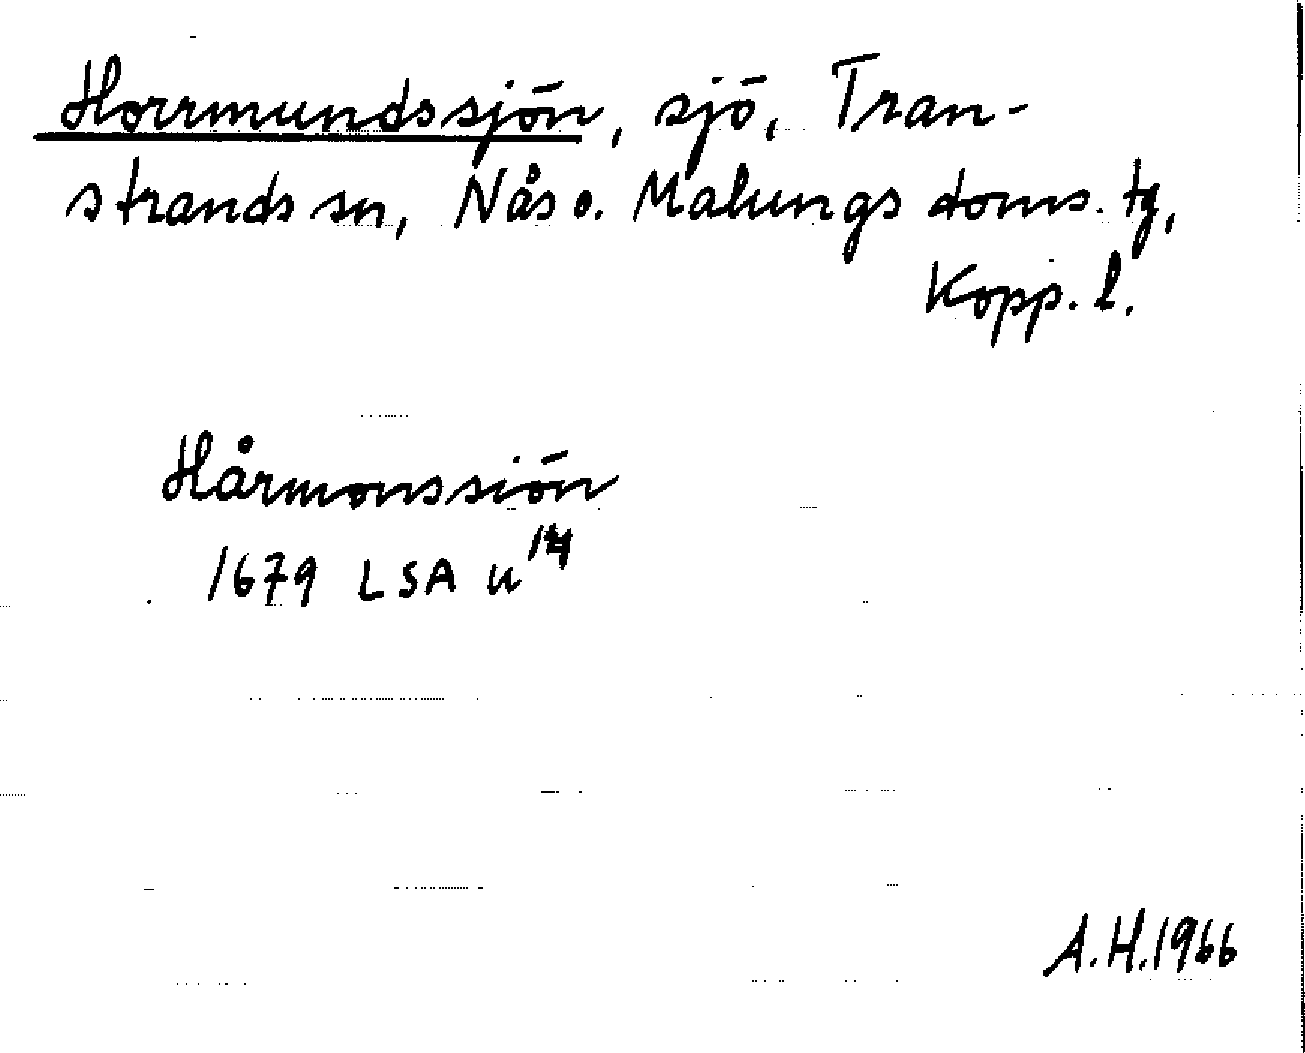 Horrmundssjön, sjö, Tran-
strands sn, Nås o. Malungs doms. tg,
Kopp. l.
Hårmonssiön
1679 LSA u
A.H. 1966